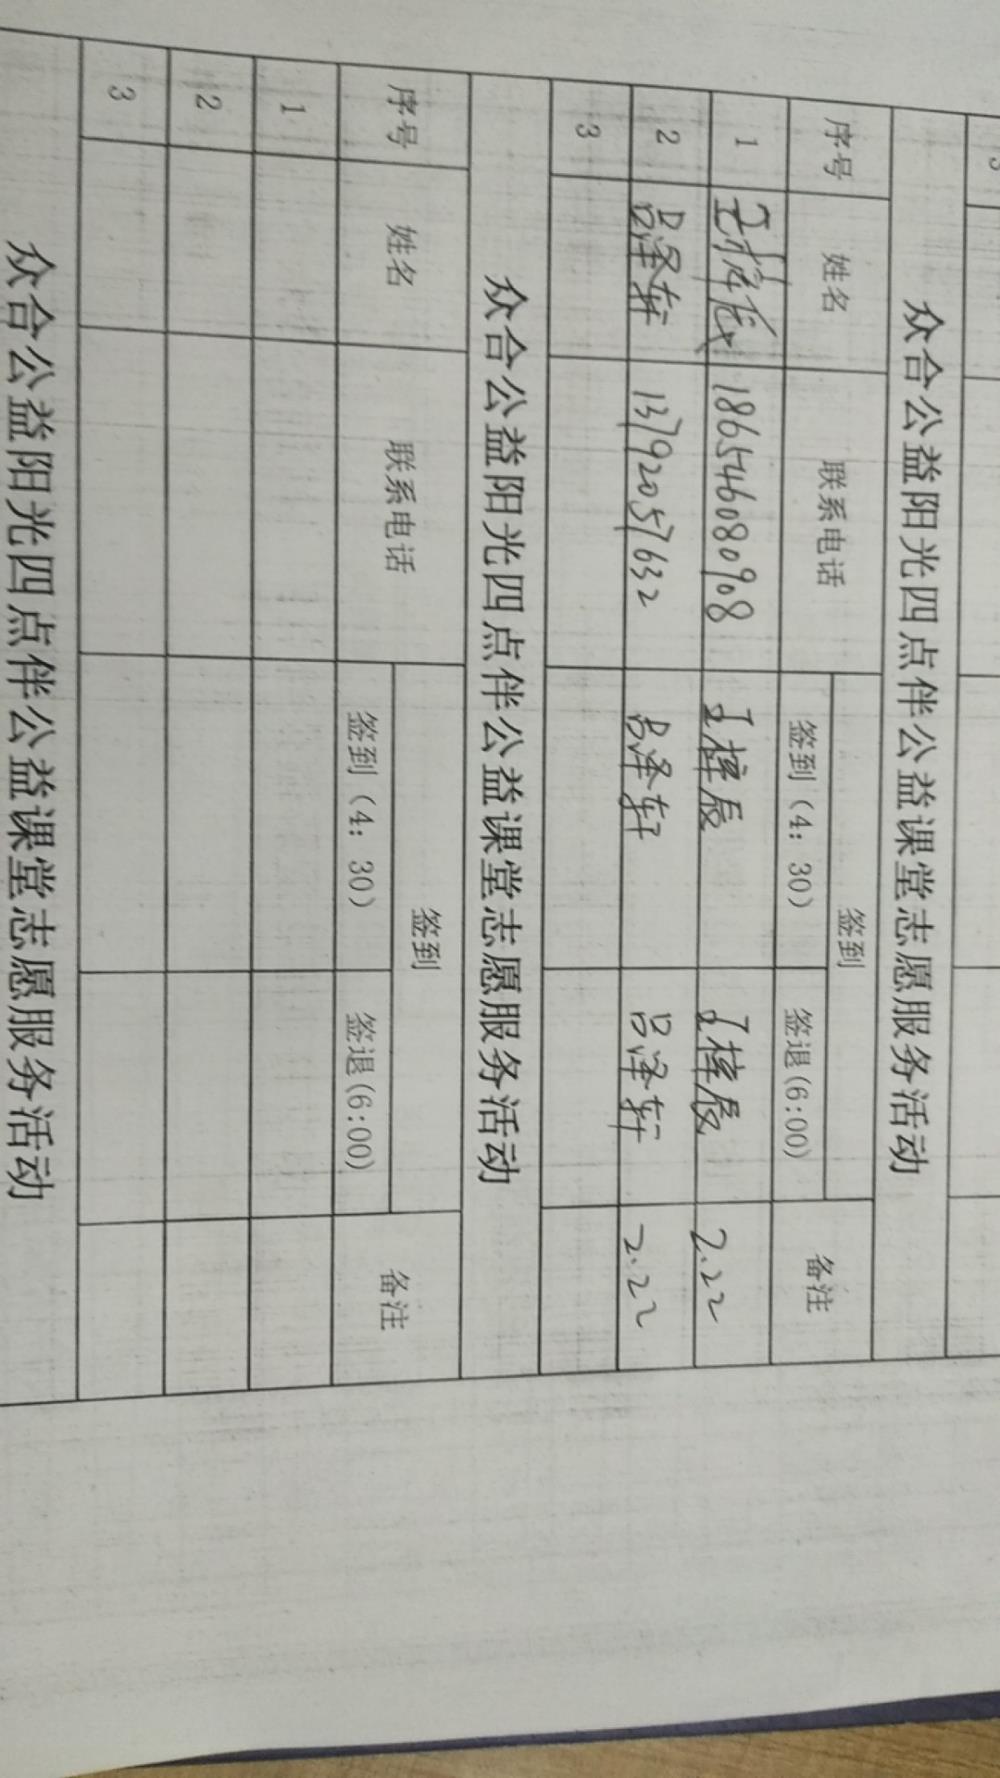 3
众合公益阳光四点伴公益课堂志愿服务活动
序号 姓名 联系电话 签到 备注
签到（4：30） 签退(6:00)
1 王梓辰 18654680908 王梓辰 王梓辰 2.22
2 吕泽轩 13792057632 吕泽轩 吕泽轩 2.22
3
众合公益阳光四点伴公益课堂志愿服务活动
序号 姓名 联系电话 签到 备注
签到（4：30） 签退(6:00)
1
2
3
众合公益阳光四点伴公益课堂志愿服务活动